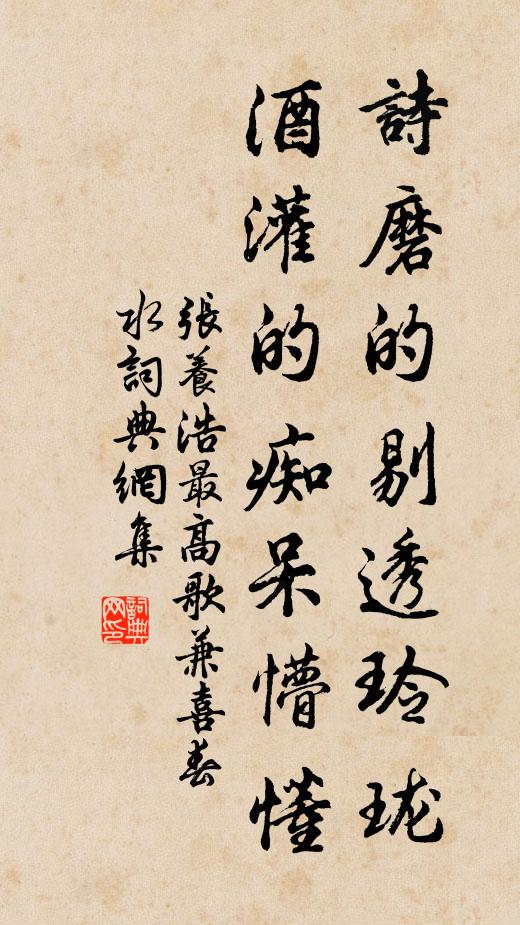 詩磨的剔透玲珑
酒灌的痴呆懵懂
張養浩最高歌兼喜春
水詞典網集
詞典
网印